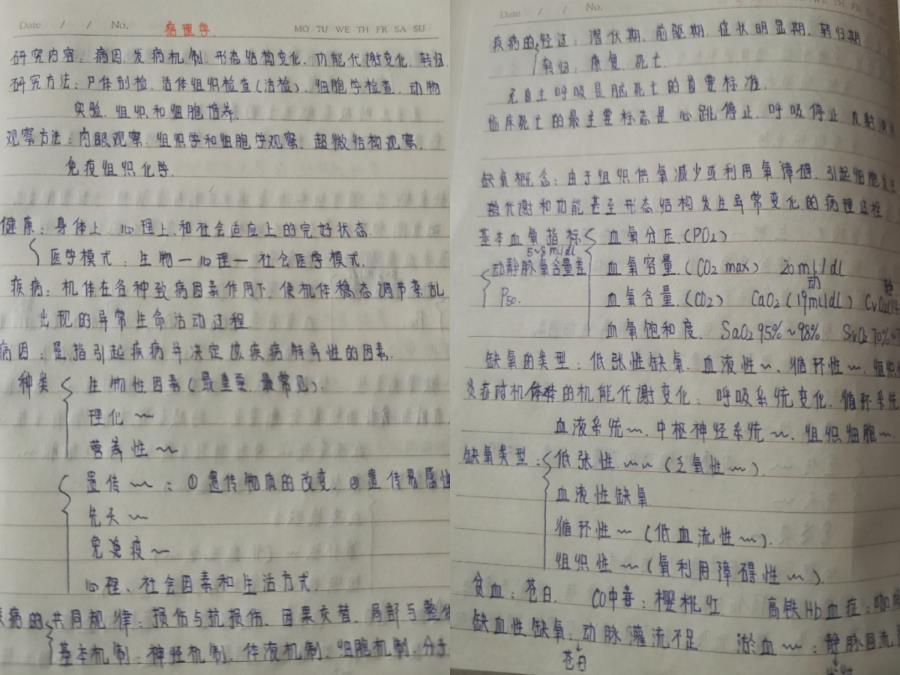 Date / / No. 病理学 MO TU WE TH FR SA SU
研究内容:病因.发病机制.形态结构变化.功能代谢变化.转归
研究方法:尸体剖检.活体组织检查(活检).细胞学检查.动物
实验.组织和细胞培养.
观察方法:肉眼观察.组织学和细胞学观察.超微结构观察.
免疫组织化学.
健康:身体上、心理上和社会适应上的完好状态.
医学模式:生物—心理—社会医学模式.
疾病:机体在各种致病因素作用下,使机体稳态调节紊乱
出现的异常生命活动过程
病因:是指引起疾病并决定该疾病特异性的因素.
种类 生物性因素(最重要.最常见).
理化~
营养性~
遗传~:①遗传物质的改变.②遗传易感性
先天~
免疫~
心理、社会因素和生活方式.
疾病的共同规律:损伤与抗损伤.因果交替.局部与整体
基本机制:神经机制.体液机制.细胞机制.分子
Date / / No. MO TU WE TH FR SA SU
疾病的经过:潜伏期.前驱期.症状明显期.转归期
转归:康复.死亡.
无自主呼吸是脑死亡的首要标准.
临床死亡的最主要标志是心跳停止.呼吸停止.反射消
缺氧概念:由于组织供氧减少或利用氧障碍.引起细胞发生
代谢和功能甚至形态结构发生异常变化的病理过程.
基本血氧指标 血氧分压.(PO₂)
5ml/dl
动静脉氧含量差 血氧容量.(CO₂ max) 20ml/dl
P₅₀. 血氧含量.(CO₂) CaO₂(19ml/dl) CvO₂
动 静
血氧饱和度. SaO₂ 95%~98%. SvO₂ 70%~
缺氧的类型:低张性缺氧.血液性~.循环性~.组织
缺氧时机体的机能代谢变化:呼吸系统变化.循环系统
血液系统~.中枢神经系统~.组织细胞~.
缺氧类型: 低张性~(乏氧性~)
血液性缺氧
循环性~(低血流性~).
组织性~(氧利用障碍性~).
贫血:苍白. CO中毒:樱桃红 高铁Hb血症:咖啡
缺血性缺氧:动脉灌流不足 淤血~:静脉回流
苍白